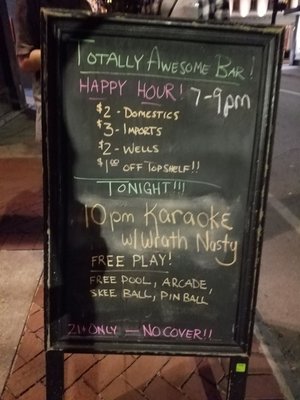 Totally Awesome Bar!
Happy Hour! 7-9pm
$2 - Domestics
$3 - Imports
$2 - Wells
$1.00 off Topshelf!!
Tonight!!!
10pm Karaoke
w/ Wrath Nasty
Free Play!
Free Pool, Arcade,
Skee Ball, Pinball
21+ Only — No Cover!!